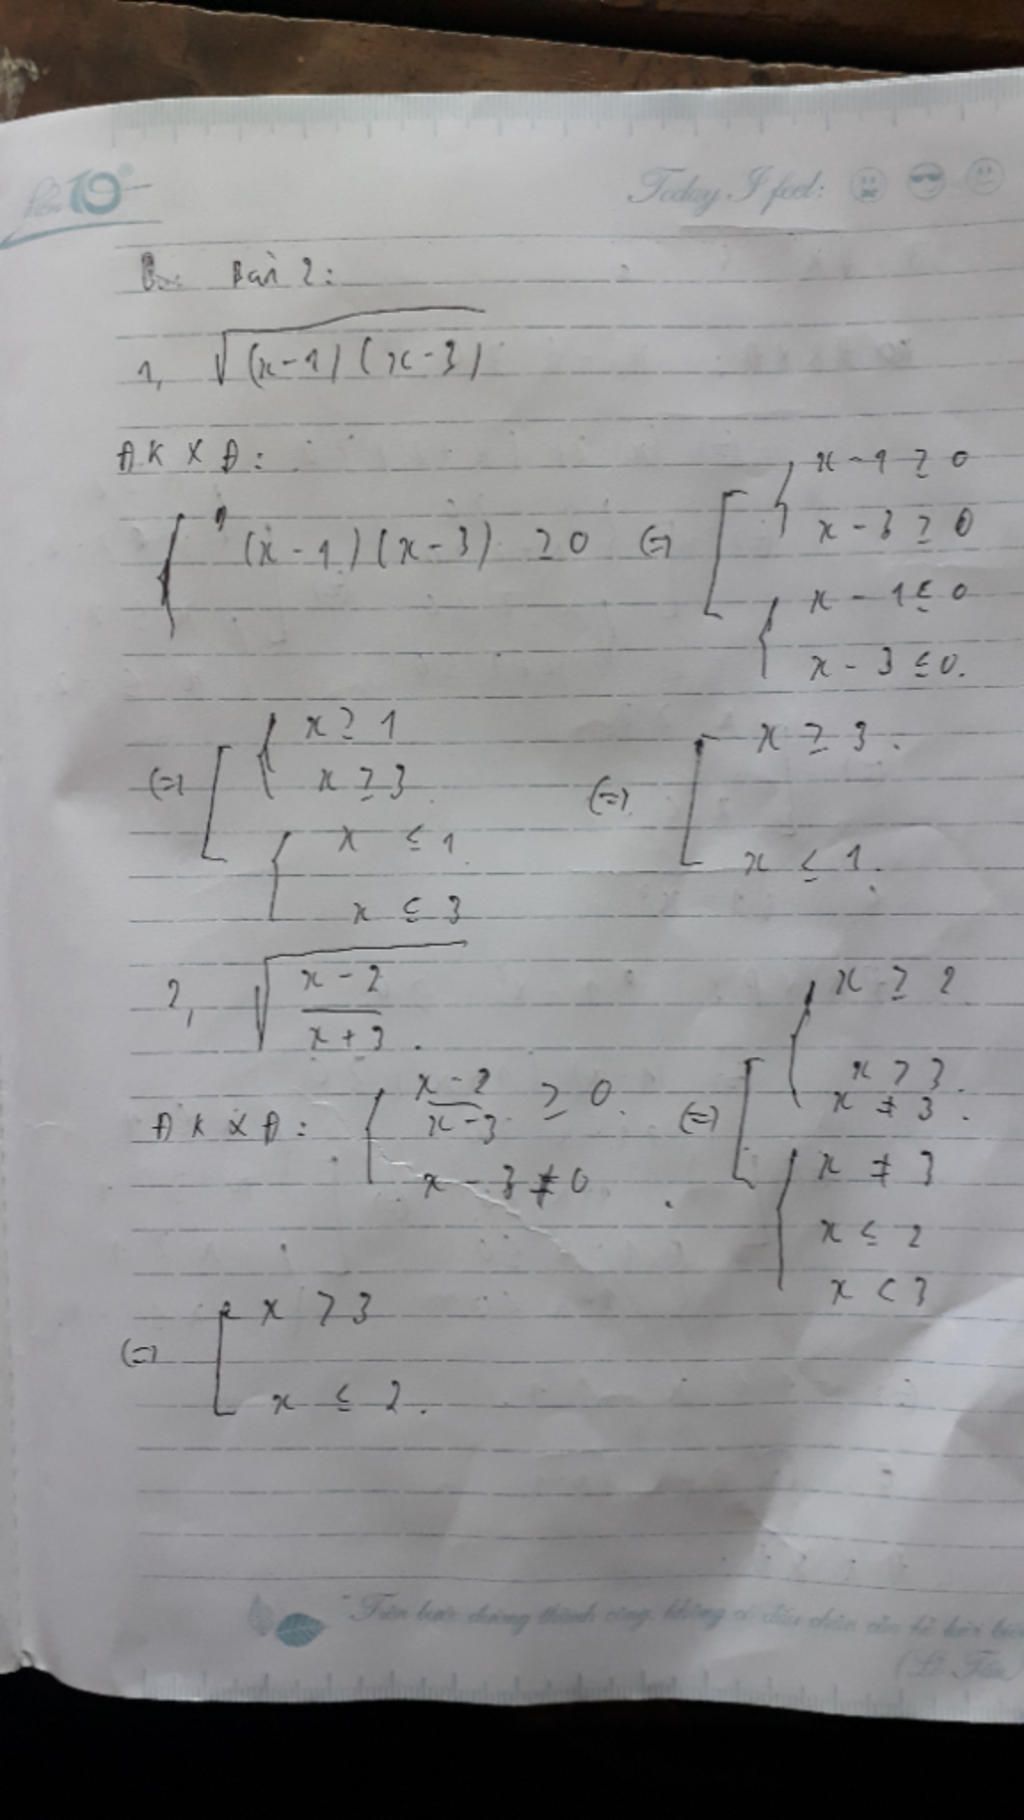 10
Today I feel:
Bài 2:
1, √(x-1)(x-3)
ĐKXĐ:
{ (x-1)(x-3) ≥ 0 (=) [ { x-1 ≥ 0
x-3 ≥ 0
{ x-1 ≤ 0
x-3 ≤ 0.
(=) [ { x ≥ 1
x ≥ 3
{ x ≤ 1
x ≤ 3
(=) [ x ≥ 3.
x ≤ 1.
2, √((x-2)/(x+3)).
ĐKXĐ: { (x-2)/(x-3) ≥ 0.
x-3 ≠ 0
(=) [ { x ≥ 2
x > 3.
x ≠ 3.
{ x ≠ 3
x ≤ 2
x < 3
(=) [ x > 3
x ≤ 2.
Trên bước đường thành công, không có dấu chân của kẻ lười